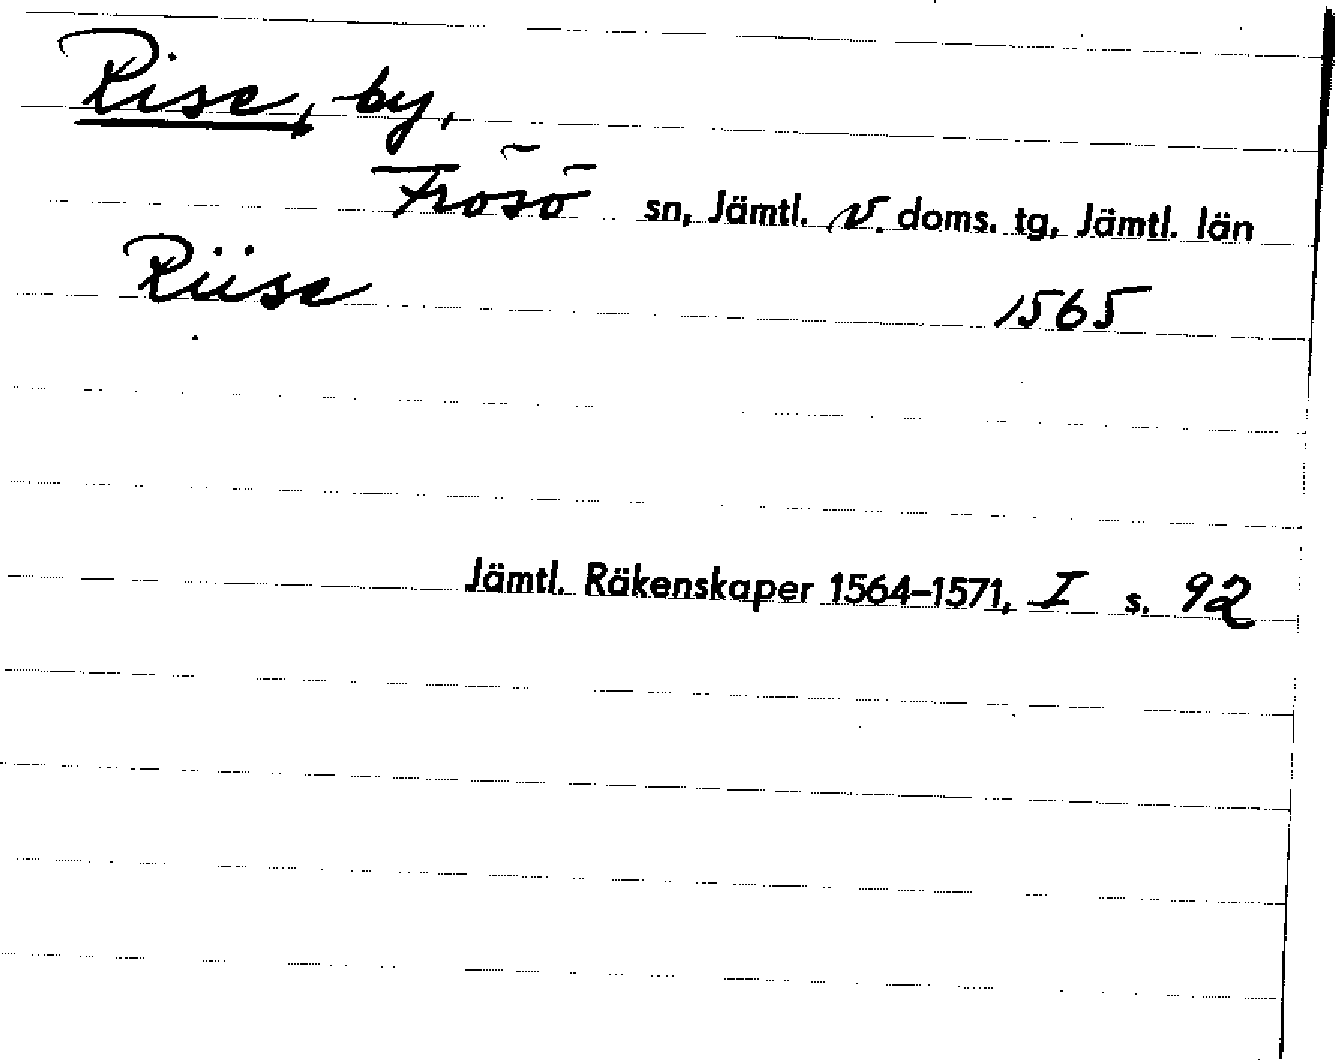 Rise, by,
Frösö sn, Jämtl. v. doms. tg, Jämtl. län
Riise 1565
Jämtl. Räkenskaper 1564-1571, I s. 92